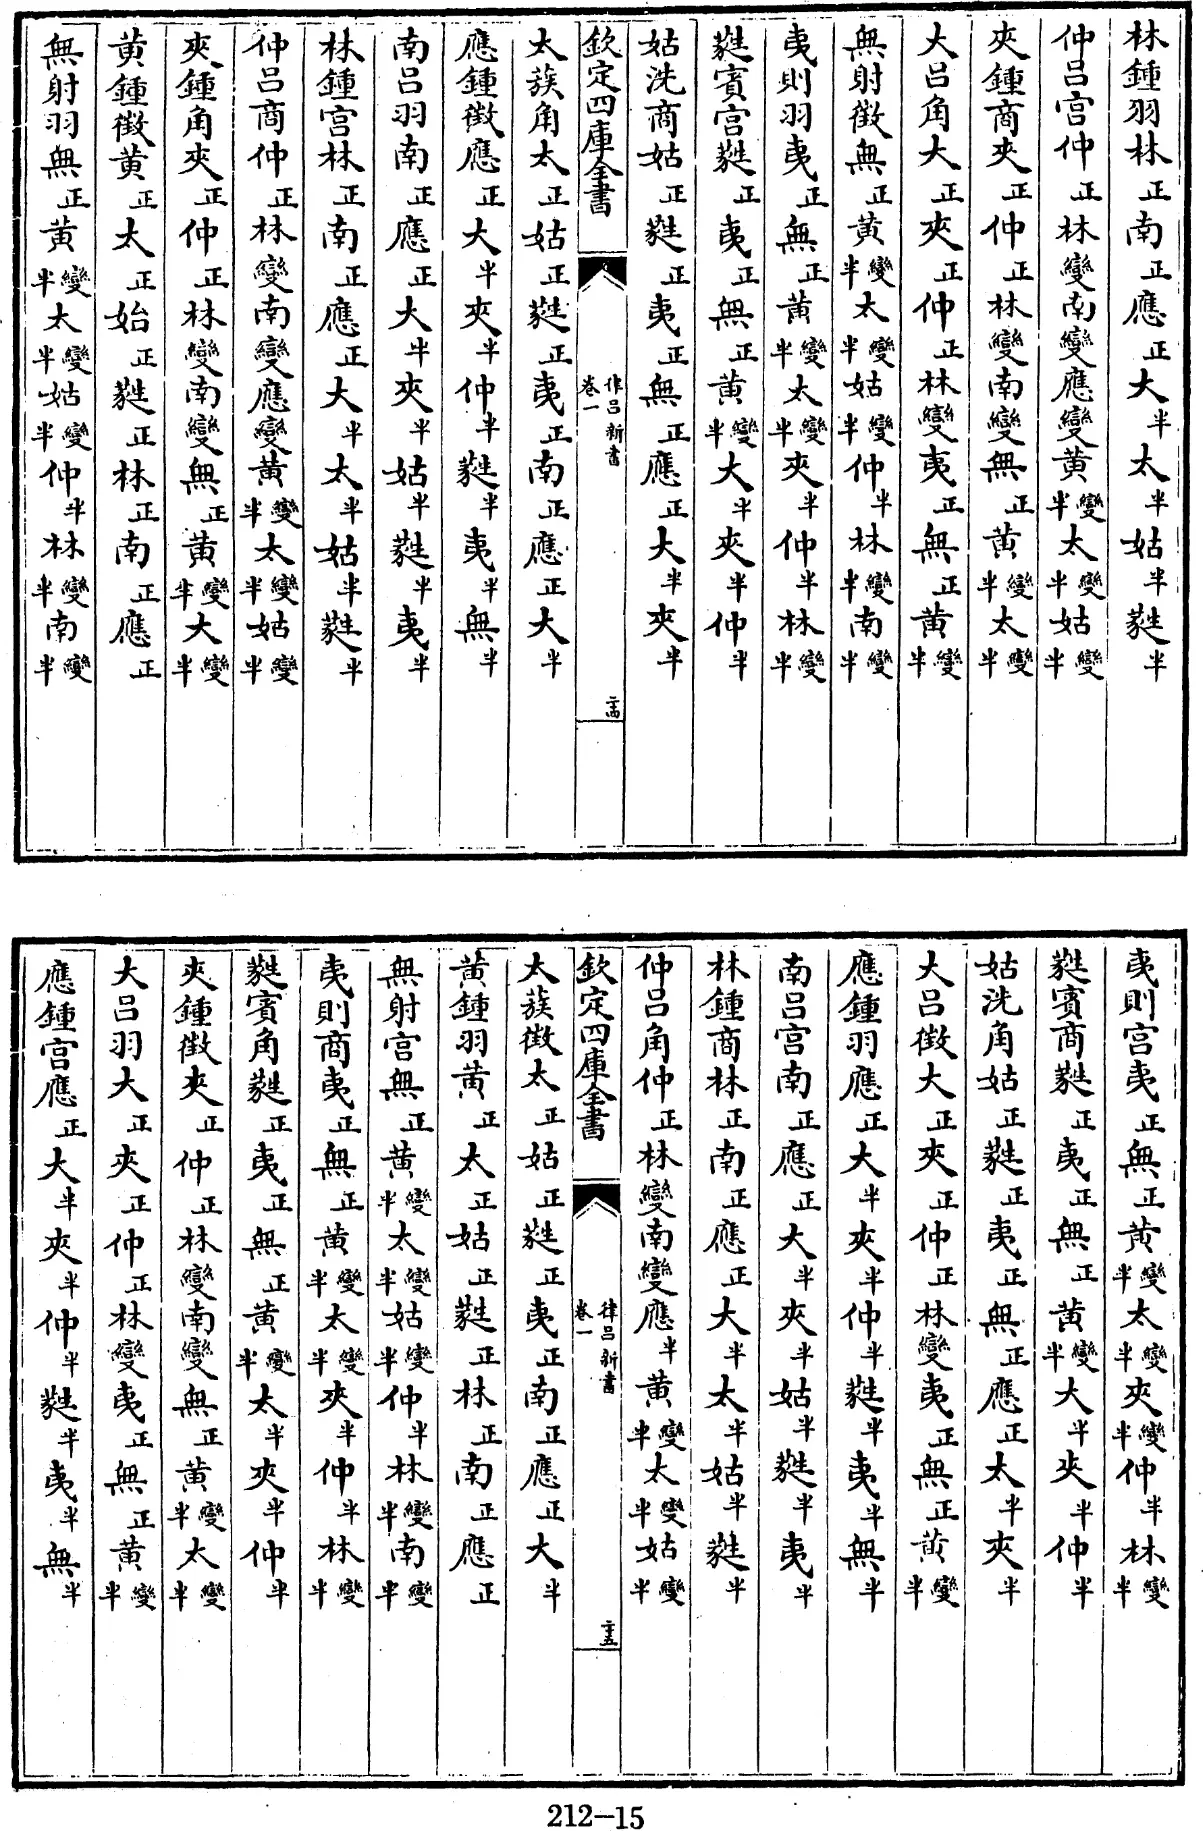 林鍾羽林正南正應正大半太半姑半蕤半
仲吕宫仲正林變南變應變黄變半太變半姑變半
夾鍾商夾正仲正林變南變無正黄變半太變半
大吕角大正夾正仲正林變夷正無正黄變半
無射徵無正黄變半太變半姑變半仲半林變半南變半
夷則羽夷正無正黄變半太變半夾半仲半林變半
蕤賓宫蕤正夷正無正黄變半大半夾半仲半
姑洗商姑正蕤正夷正無正應正大半夾半
欽定四庫全書
律吕新書
卷一
二十四
太簇角太正姑正蕤正夷正南正應正大半
應鍾徵應正大半夾半仲半蕤半夷半無半
南吕羽南正應正大半夾半姑半蕤半夷半
林鍾宫林正南正應正大半太半姑半蕤半
仲吕商仲正林變南變應變黄變半太變半姑變半
夾鍾角夾正仲正林變南變無正黄變半大變半
黄鍾徵黄正太正始正蕤正林正南正應正
無射羽無正黄變半太變半姑變半仲半林變半南變半
夷則宫夷正無正黄變半太變半夾變半仲半林變半
蕤賓商蕤正夷正無正黄變半大半夾半仲半
姑洗角姑正蕤正夷正無正應正太半夾半
大吕徵大正夾正仲正林變夷正無正黄變半
應鍾羽應正大半夾半仲半蕤半夷半無半
南吕宫南正應正大半夾半姑半蕤半夷半
林鍾商林正南正應正大半太半姑半蕤半
仲吕角仲正林變南變應半黄變半太變半姑變半
欽定四庫全書
律吕新書
卷一
二十五
太簇徵太正姑正蕤正夷正南正應正大半
黄鍾羽黄正太正姑正蕤正林正南正應正
無射宫無正黄變半太變半姑變半仲半林變半南變半
夷則商夷正無正黄變半太變半夾半仲半林變半
蕤賓角蕤正夷正無正黄變半太半夾半仲半
夾鍾徵夾正仲正林變南變無正黄變半太變半
大吕羽大正夾正仲正林變夷正無正黄變半
應鍾宫應正大半夾半仲半蕤半夷半無半
212-15